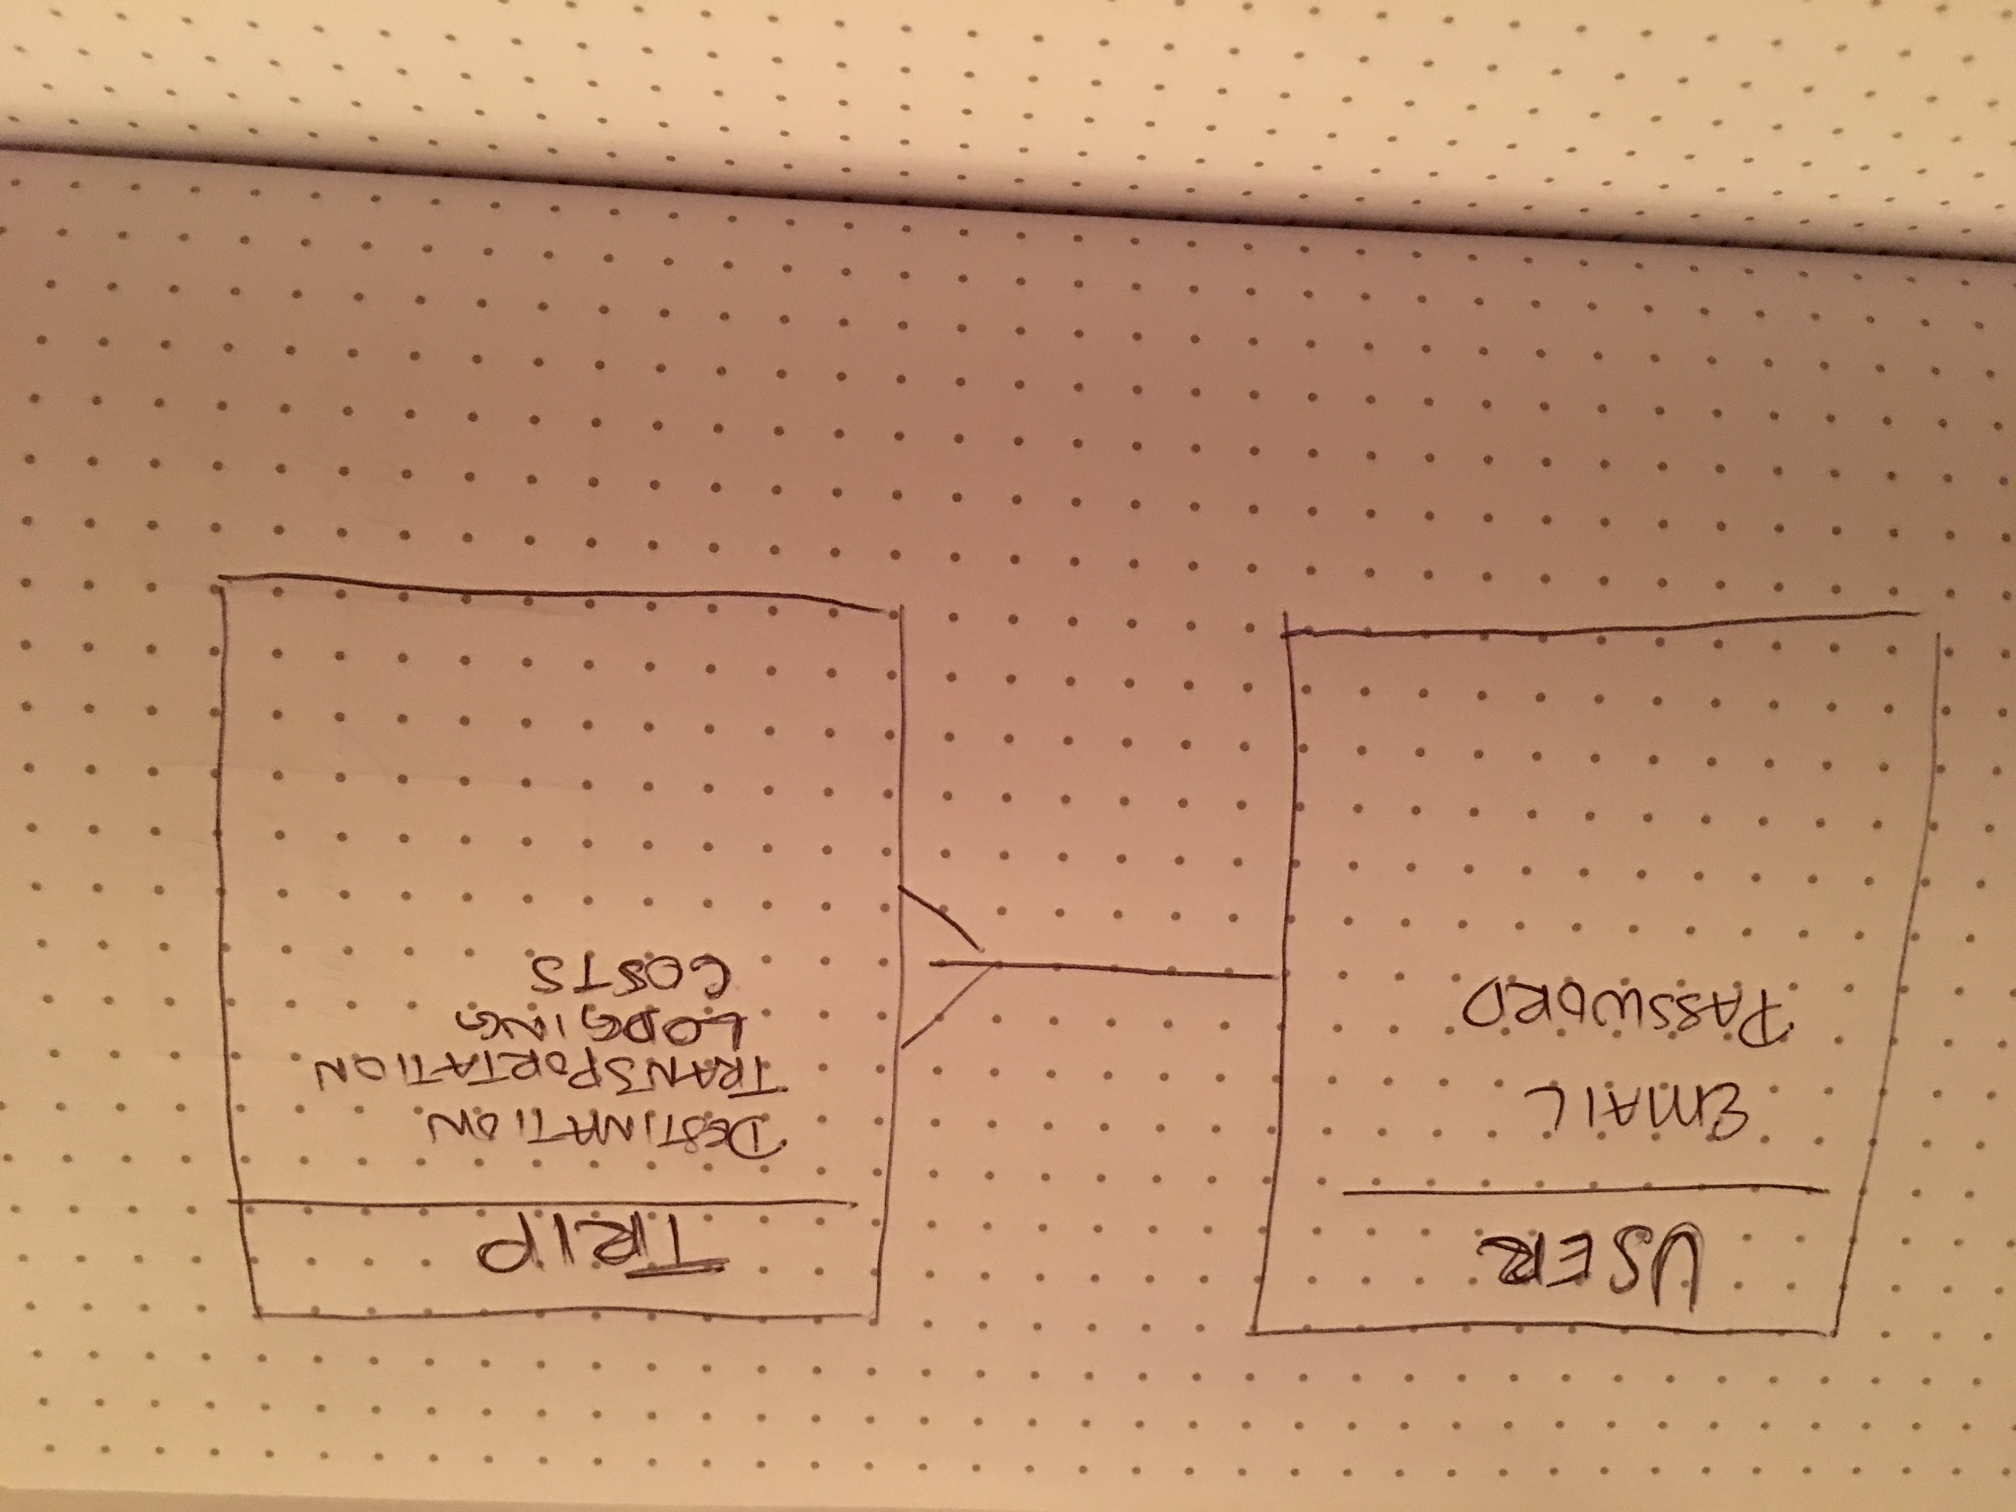 USER
EMAIL
PASSWORD
TRIP
DESTINATION
TRANSPORTATION
LODGING
COSTS